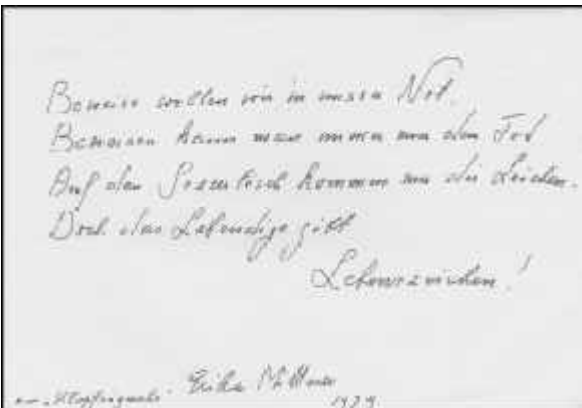 Beweise wollen wir in unsrer Not.
Beweisen kann man immer nur den Tod
Auf den Seziertisch kommen nur die Leichen.
Doch das Lebendige gibt
Lebenszeichen!
Erika